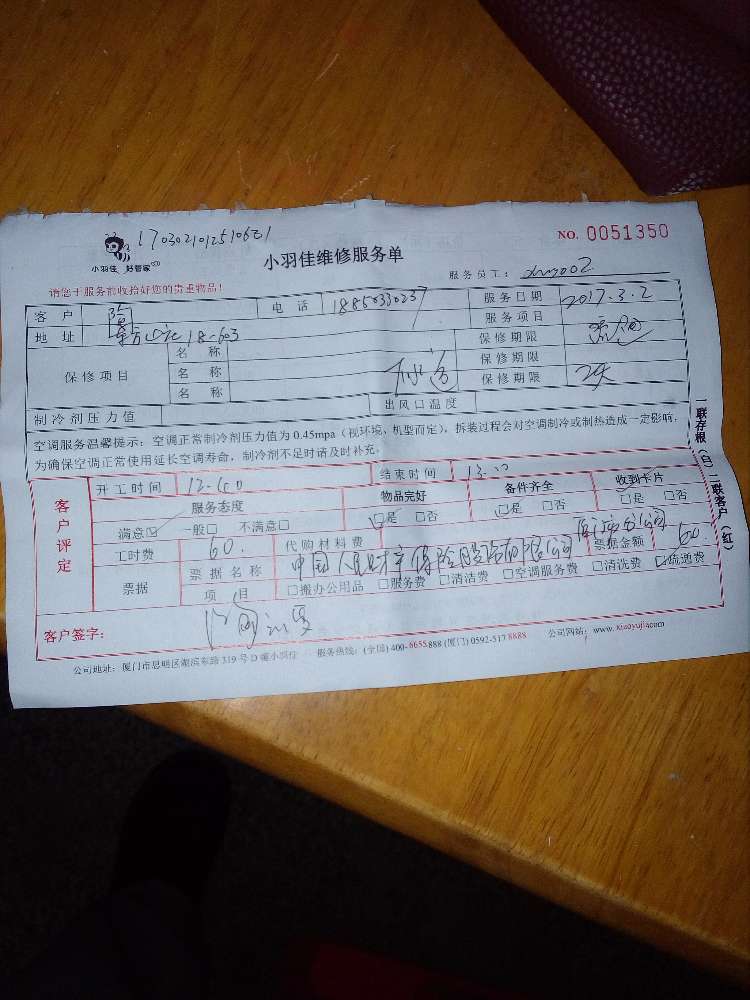 170302101251
NO. 0051350
小羽佳 好管家
小羽佳维修服务单
服务员工：
请您于服务前收拾好您的贵重物品！
客户 电话 服务日期 2017.3.2
地址 18-603 服务项目
保修项目 名称 保修期限
名称 保修期限
名称 保修期限
制冷剂压力值 出风口温度
空调服务温馨提示：空调正常制冷剂压力值为 0.45mpa（视环境、机型而定），拆装过程会对空调制冷或制热造成一定影响，
为确保空调正常使用延长空调寿命，制冷剂不足时请及时补充。
一联存根（白）二联客户（红）
客户评定
开工时间 结束时间 13.00
服务态度 物品完好 备件齐全 收到卡片
满意☑ 一般□ 不满意□ ☑是 □否 ☑是 □否 ☑是 □否
工时费 60. 代购材料费 票据金额 60.
票据 票据名称 中国人民财产保险股份有限公司
项目 □搬办公用品 □服务费 □清洁费 □空调服务费 □清洗费 ☑疏通费
客户签字：
公司地址：厦门市思明区湖滨东路 319 号 D 服务热线：(全国) 400-8655888 (厦门) 0592-517 8888 公司网站：www.xiaoyujia.com